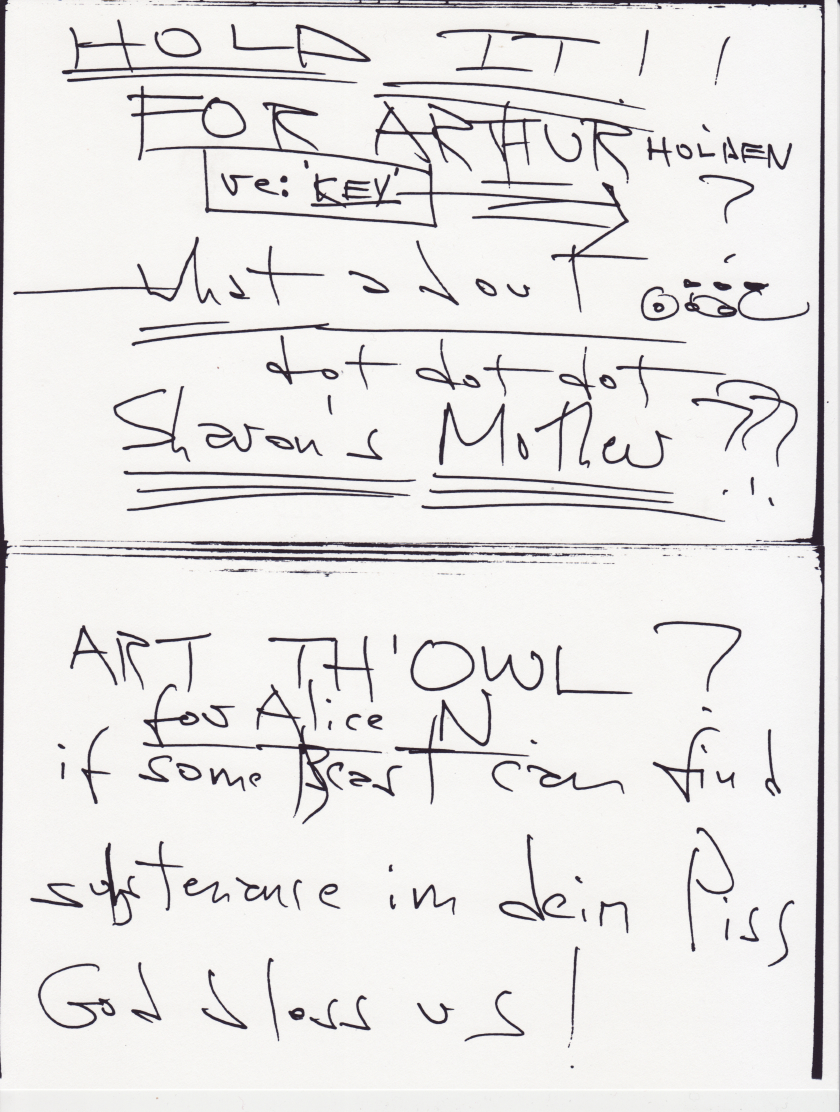 HOLD IT!!
FOR ARTHUR HOLDEN
re: 'KEY' ?
What about
dot dot dot
Sharon's Mother ???
ART TH'OWL ?
for Alice N
if some Beast can find
sustenance in dein Piss
God bless us!